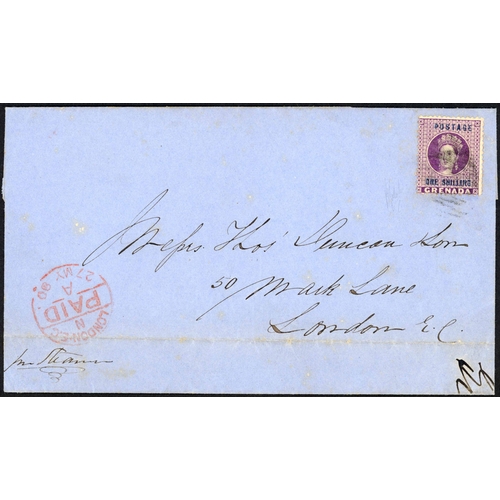 POSTAGE
ONE SHILLING
GRENADA
Messrs Thos Duncan & Son
50 Mark Lane
London E.C.
LONDON · E.C
N
PAID
A
27 MY 80
per Steamer